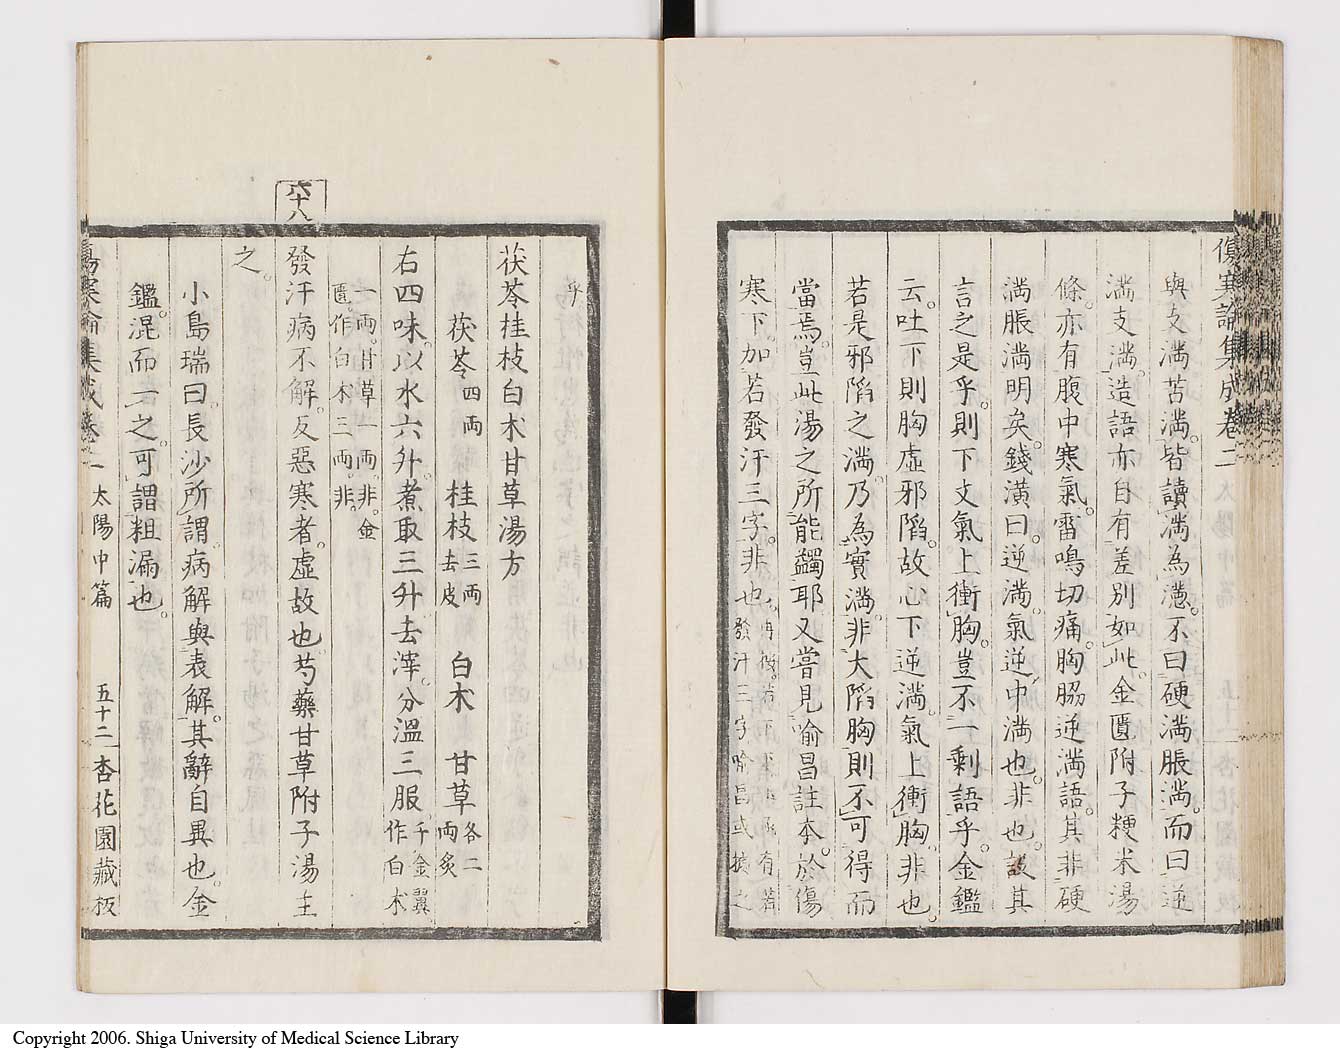 傷寒論集成卷二
與支満苦満。皆讀満為懣。不曰硬満脹満。而曰逆
満支満。造語亦自有差別如此。金匱附子粳米湯
條。亦有腹中寒氣。雷鳴切痛。胸脇逆満語。其非硬
満脹満明矣。錢潢曰。逆満。氣逆中満也。非也。設其
言之是乎。則下文氣上衝胸。豈不一剩語乎。金鑑
云。吐下則胸虛邪陷。故心下逆満。氣上衝胸。非也。
若是邪陷之満。乃為實満。非大陷胸則不可得而
當焉。豈此湯之所能蠲耶。又嘗見喻昌註本。於傷
寒下。加若發汗三字。非也。
發汗三字喻昌或據之
乎
茯苓桂枝白朮甘草湯方
茯苓四両 桂枝三両去皮 白朮 甘草各二両炙
右四味。以水六升。煮取三升。去滓。分溫三服。千金翼作白朮
一両。甘草一両。非。金
匱。作白朮三両。非。
六十八
發汗病不解。反惡寒者。虛故也。芍藥甘草附子湯主
之。
小島瑞曰。長沙所謂病解與表解。其辭自異也。金
鑑混而一之。可謂粗漏也。
傷寒論集成卷二 太陽中篇 五十二 杏花園藏板
Copyright 2006. Shiga University of Medical Science Library